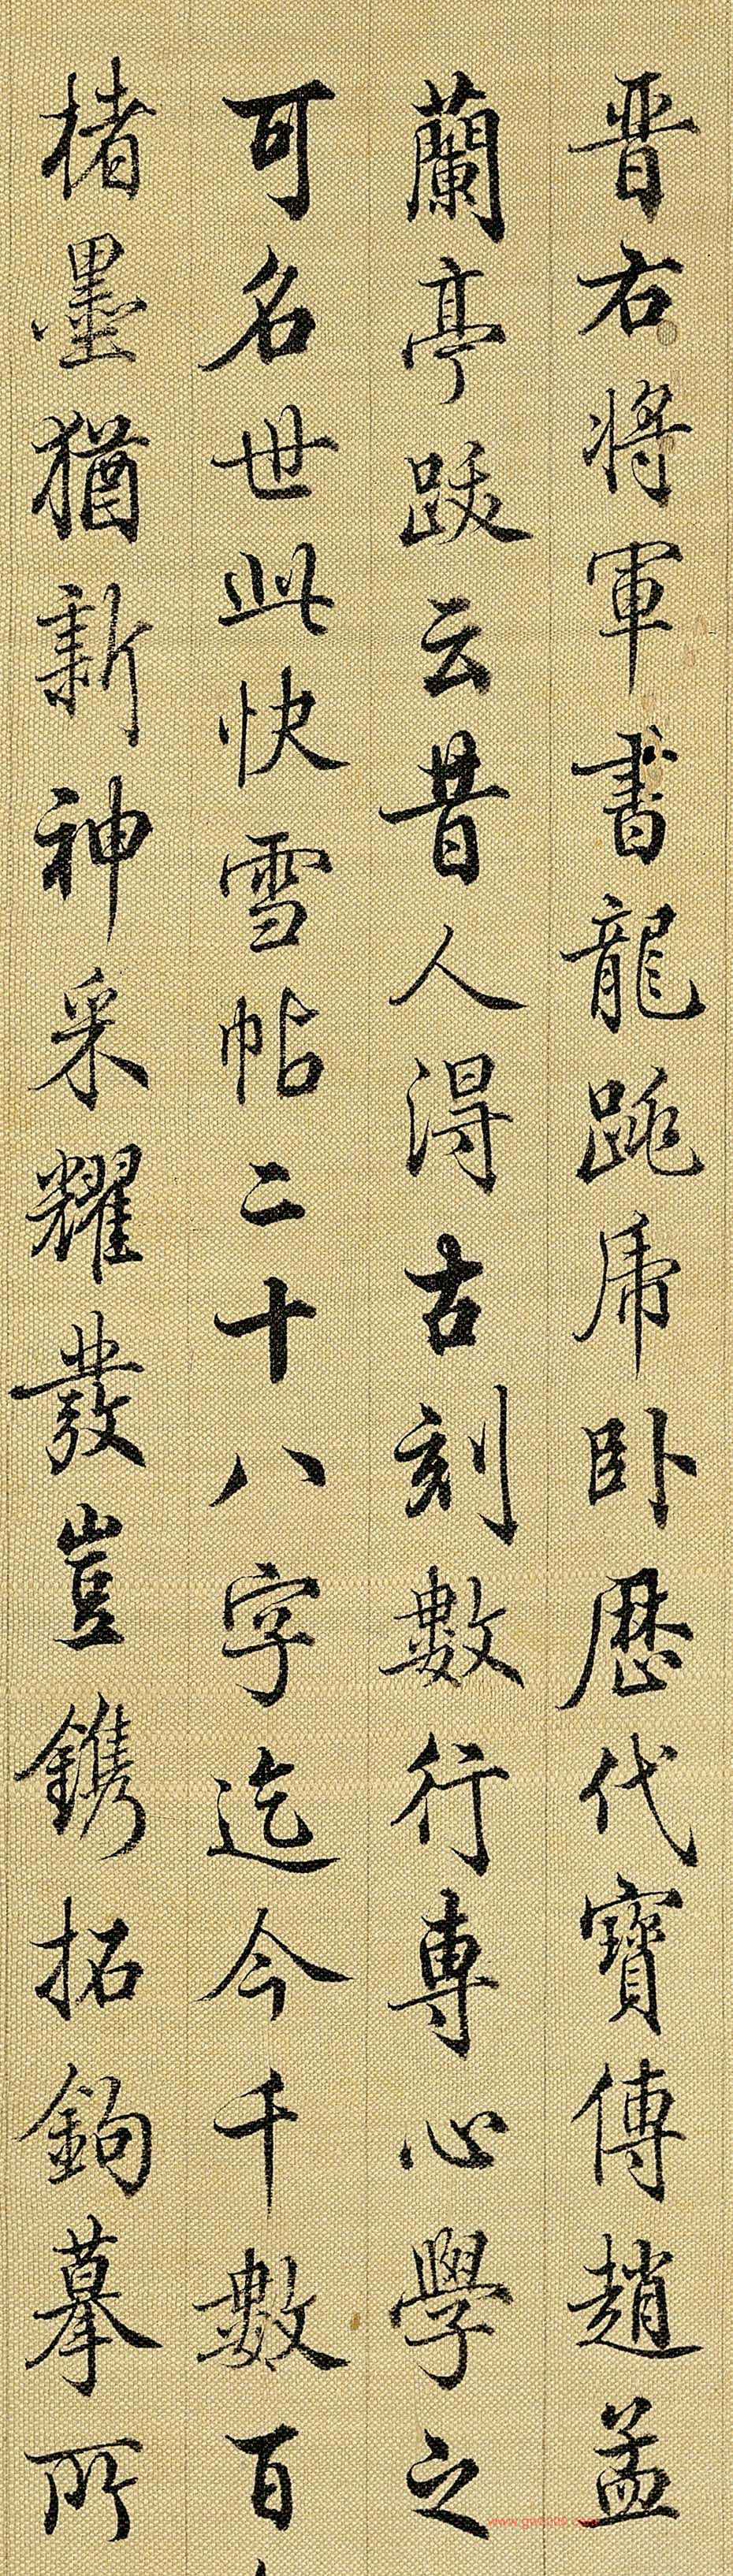 晋右将軍書龍跳虎卧歷代寶傳趙孟
蘭亭跋云昔人得古刻數行專心學之
可名世此快雪帖二十八字迄今千數百
楮墨猶新神采耀發豈鐫拓鉤摹所